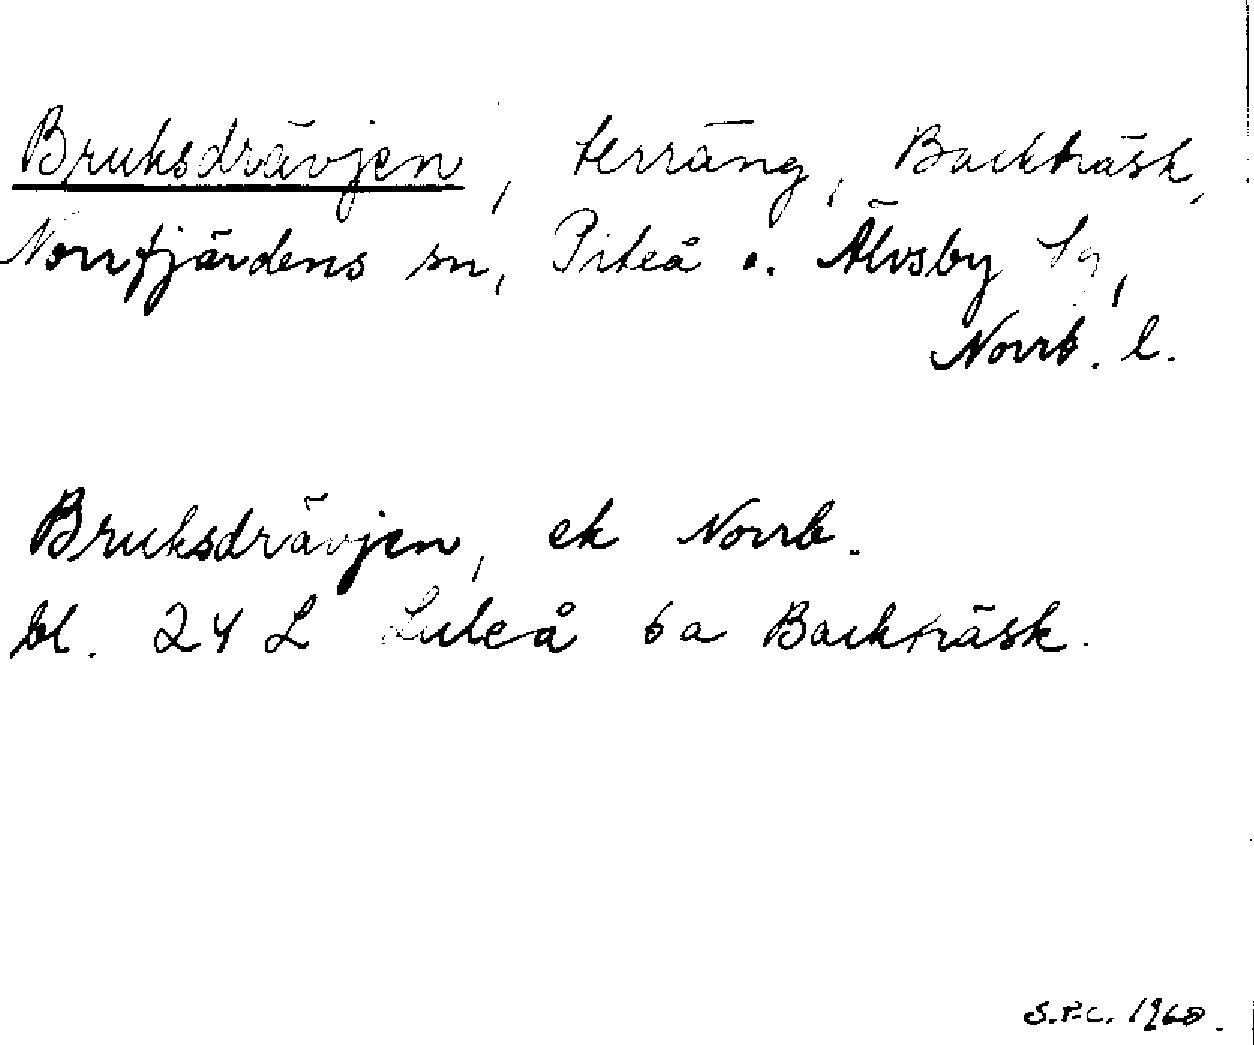 Bruksdrävjen, terräng, Backträsk,
Norrfjärdens sn, Piteå o. Älvsby tg,
Norrb. l.
Bruksdrävjen, ek Norrb.
bl. 24 L Luleå 6a Backträsk.
S.P.C. 1960.